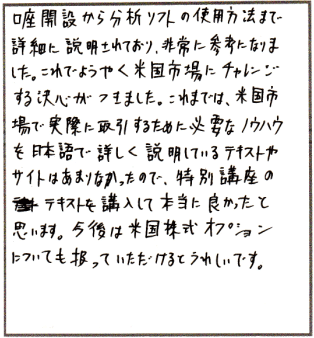 口座開設から分析ソフトの使用方法まで
詳細に説明されており、非常に参考になりま
した。これでようやく米国市場にチャレンジ
する決心がつきました。これまでは、米国市
場で実際に取引するために必要なノウハウ
を日本語で詳しく説明しているテキストや
サイトはあまりなかったので、特別講座の
テキストを購入して本当に良かったと
思います。今後は米国株式オプション
についても扱っていただけるとうれしいです。